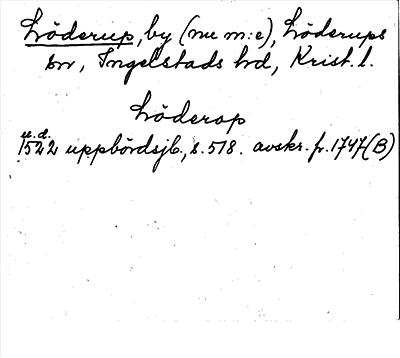 Löderup, by (nu m:e), Löderups
sn, Ingelstads hd, Krist. l.
Löderop
u.d.
1522 uppbördsjb., s. 518. avskr. fr. 1747 (B)